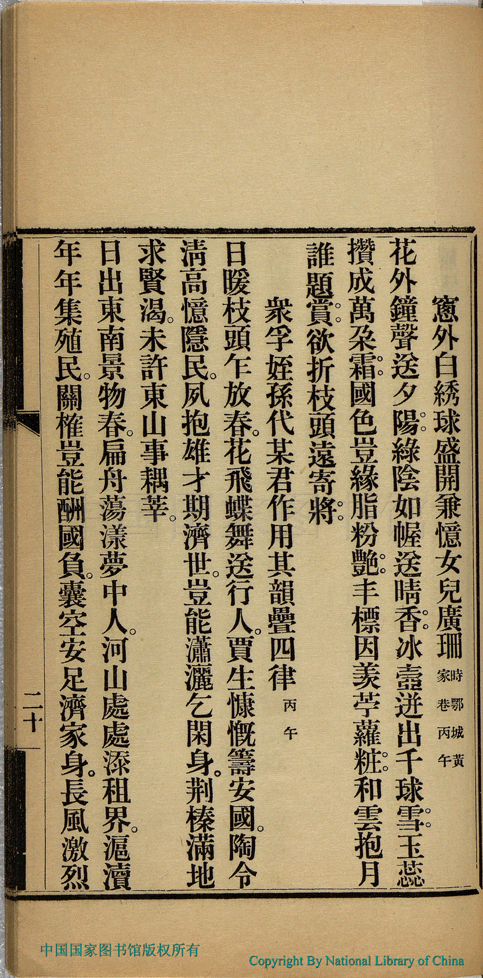 窻外白綉球盛開兼憶女兒廣珊時鄂城黃家巷丙午
花外鐘聲送夕陽。綠陰如幄送晴香。冰壺迸出千球雪。玉蕊
攢成萬朶霜。國色豈緣脂粉艷。丰標因羡苧蘿粧。和雲抱月
誰題賞。欲折枝頭遠寄將。
衆孚姪孫代某君作用其韻疊四律丙午
日暖枝頭乍放春。花飛蝶舞送行人。賈生慷慨籌安國。陶令
清高憶隱民。夙抱雄才期濟世。豈能瀟灑乞閑身。荆榛滿地
求賢渴。未許東山事耦莘。
日出東南景物春。扁舟蕩漾夢中人。河山處處添租界。滬瀆
年年集殖民。關榷豈能酬國負。囊空安足濟家身。長風激烈
二十
中国国家图书馆版权所有
Copyright By National Library of China